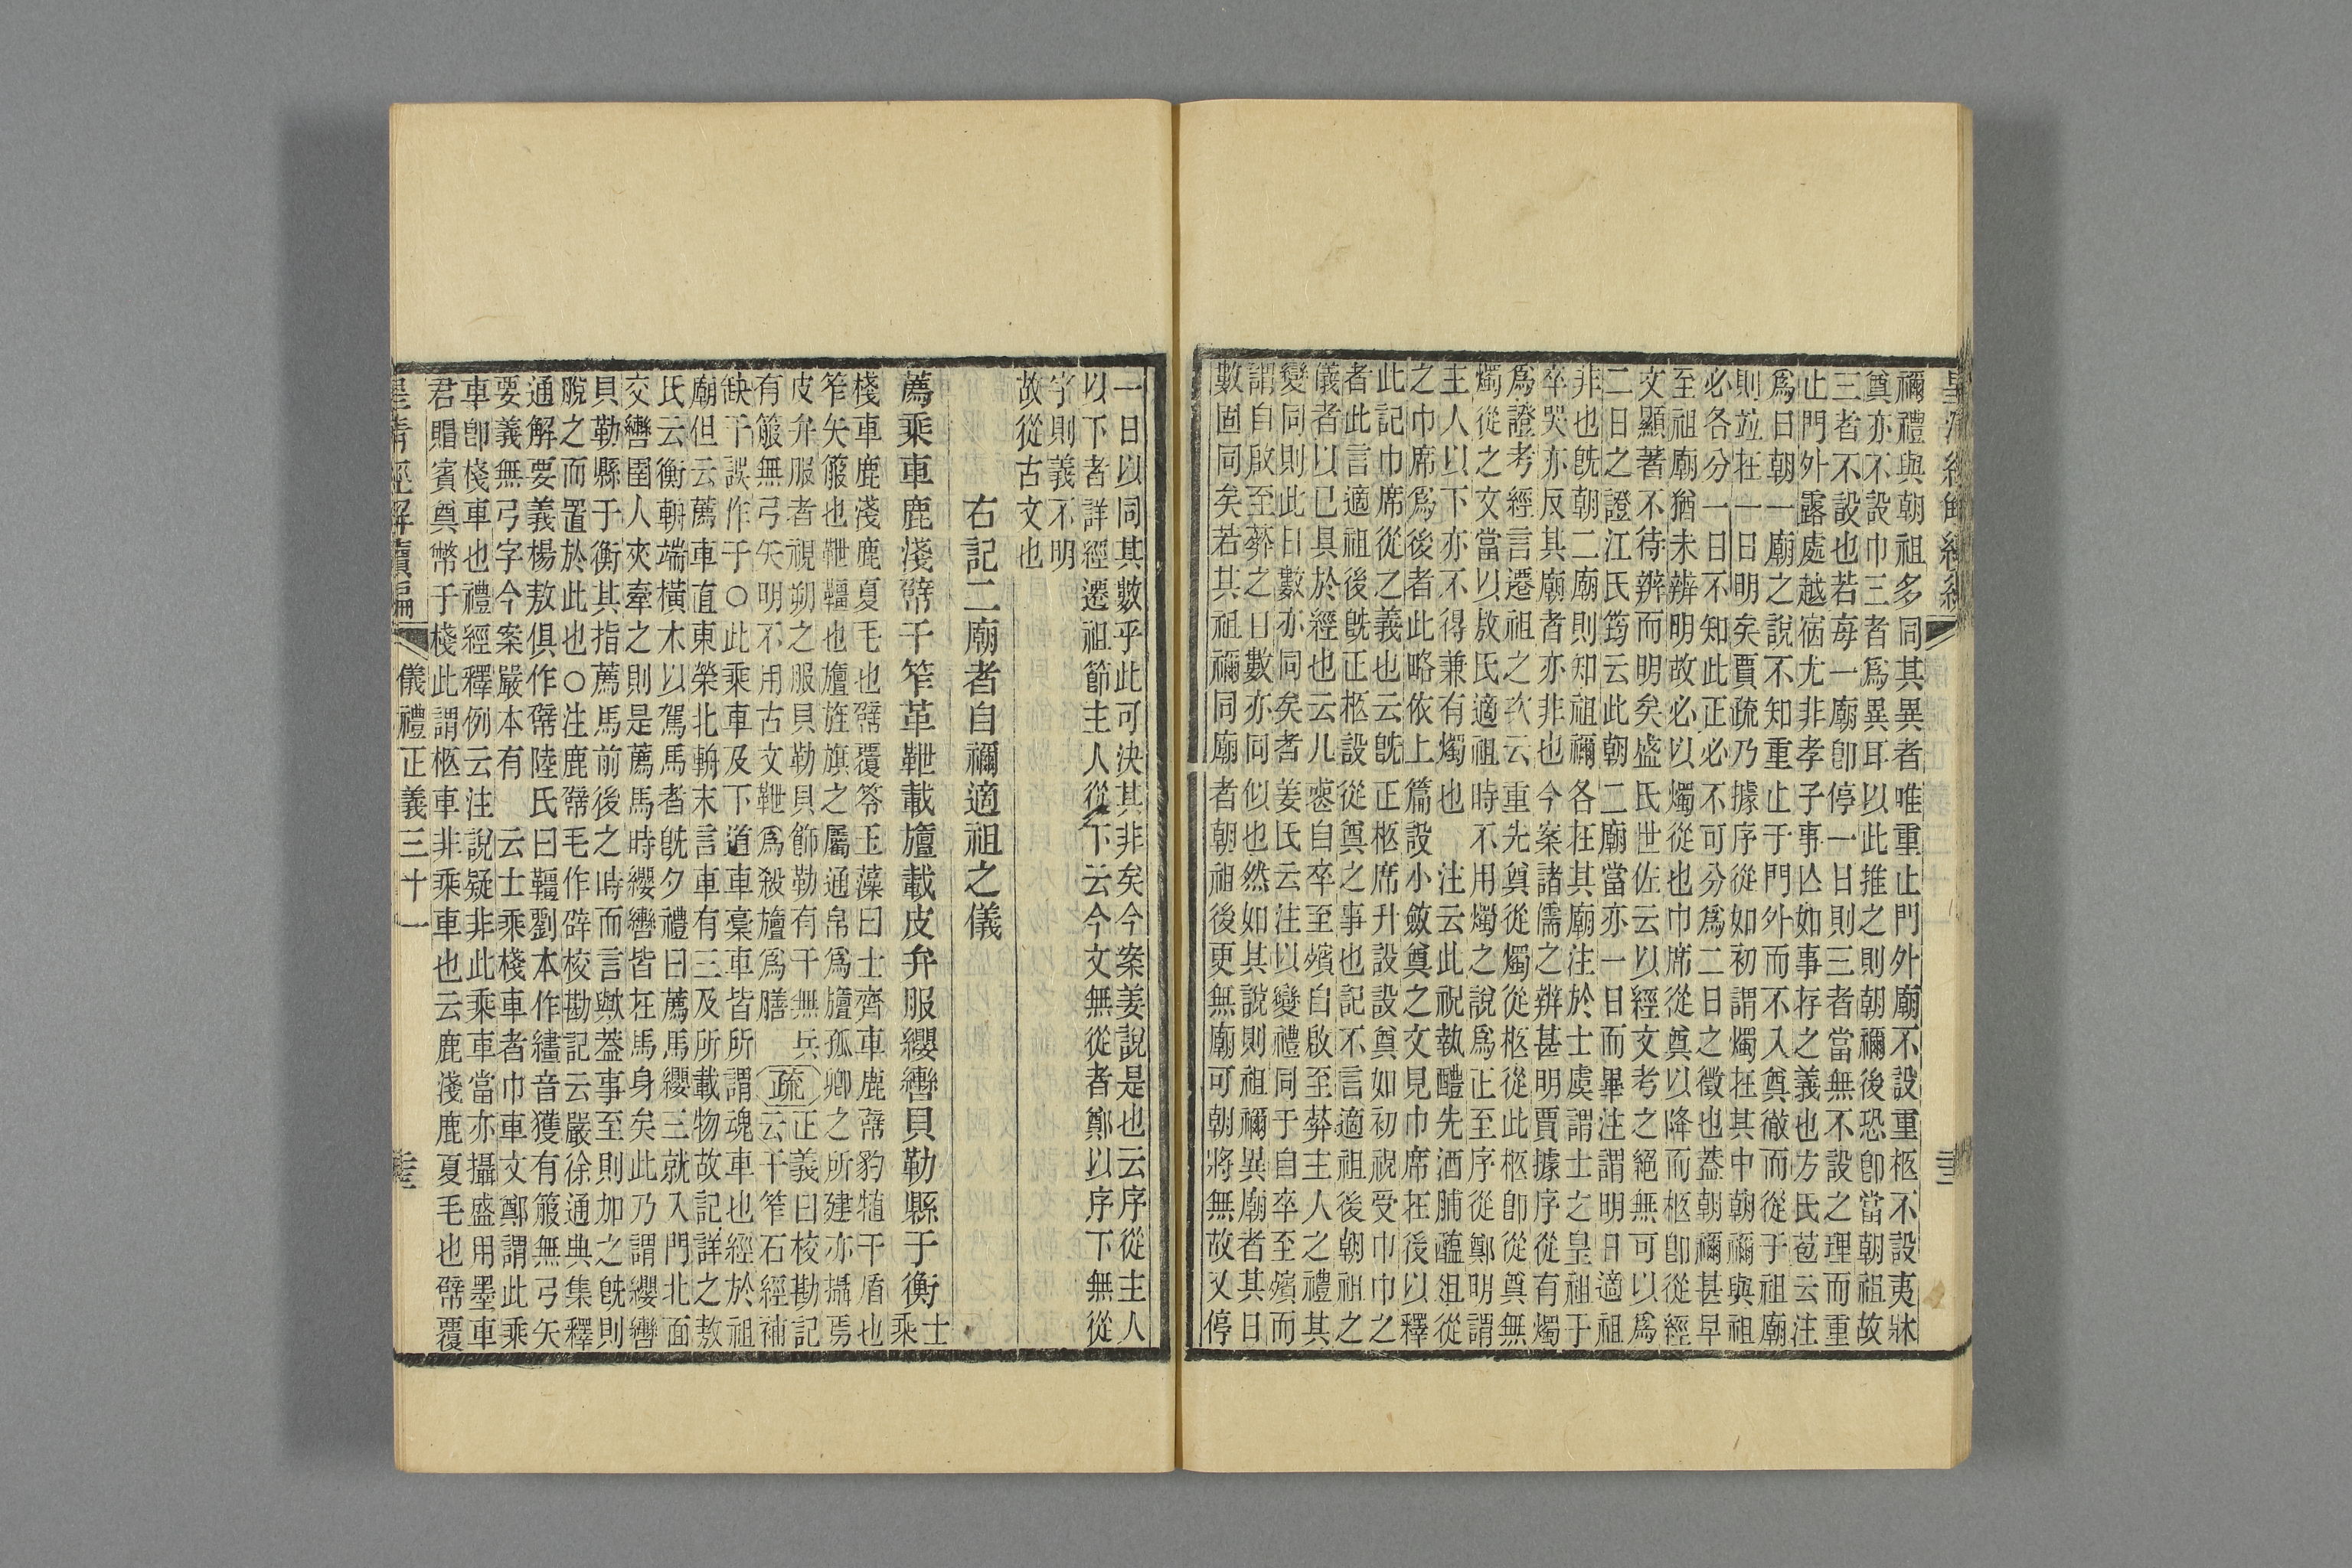 禰禮與朝祖多同其異者唯重止門外廟不設重柩不設夷牀
奠亦不設巾三者爲異耳以此推之則朝禰後恐卽當朝祖故
三者不設也若每一廟卽停一日則三者當無不設之理而重
止門外露處越宿尤非孝子事亾如事存之義也方氏苞云注
爲日朝一廟之說不知重止于門外而不入奠徹而從于祖廟
則竝在一日明矣賈疏乃據序從如初謂燭在其中朝禰與祖
必各分一日不知此正必不可分爲二日之徵也葢朝禰甚早
至祖廟猶未辨明故必以燭從也巾席從奠以降而柩卽從經
文顯著不待辨而明矣盛氏世佐云以經文考之絕無可以爲
二日之證江氏筠云此朝二廟當亦一日而畢注謂明日適祖
非也旣朝二廟則知祖禰各在其廟注於士虞謂士之皇祖于
卒哭亦反其廟者亦非也今案諸儒之辨甚明賈據序從有燭
爲證考經言遷祖之次云重先奠從燭從柩從此柩卽從奠無
燭從之文當以敖氏適祖時不用燭之說爲正至序從鄭明謂
主人以下亦不得兼有燭也　注云此祝執醴先酒脯醢俎從
之巾席爲後者此略依上篇設小斂奠之文見巾席在後以釋
此記巾席從之義也云旣正柩席升設設奠如初祝受巾巾之
者此言適祖後旣正柩設從奠之事也記不言適祖後朝祖之
儀者以已具於經也云凡喪自卒至殯自啟至葬主人之禮其
變同則此日數亦同矣者姜氏云注以變禮同于自卒至殯而
謂自啟至葬之日數亦同似也然如其說則祖禰異廟者其日
數固同矣若其祖禰同廟者朝祖後更無廟可朝將無故又停
一日以同其數乎此可決其非矣今案姜說是也云序從主人
以下者詳經遷祖節主人從下云今文無從者鄭以序下無從
字則義不明
故從古文也
右記二廟者自禰適祖之儀
薦乘車鹿淺幦干笮革靾載旜載皮弁服纓轡貝勒縣于衡士乘
棧車鹿淺鹿夏毛也幦覆笭玉藻曰士齊車鹿幦豹犆干盾也
笮矢箙也靾韁也旜旌旗之屬通帛爲旜孤卿之所建亦攝焉
皮弁服者視朔之服貝勒貝飾勒有干無兵
有箙無弓矢明不用古文靾爲殺旜爲膳
疏
正義曰校勘記
云干笮石經補
缺干誤作于○此乘車及下道車槀車皆所謂魂車也經於祖
廟但云薦車直東榮北輈末言車有三及所載物故記詳之敖
氏云衡輈端橫木以駕馬者旣夕禮曰薦馬纓三就入門北面
交轡圉人夾牽之則是薦馬時纓轡皆在馬身矣此乃謂纓轡
貝勒縣于衡其指薦馬前後之時而言歟葢事至則加之旣則
脫之而置於此也○注鹿幦毛作辟校勘記云嚴徐通典集釋
通解要義楊敖俱作幦陸氏曰韁劉本作繮音獲有箙無弓矢
要義無弓字今案嚴本有　云士乘棧車者巾車文鄭謂此乘
車卽棧車也禮經釋例云注說疑非此乘車當亦攝盛用墨車
君賵賓奠幣于棧此謂柩車非乘車也云鹿淺鹿夏毛也幦覆
皇清經解續編　儀禮正義三十一